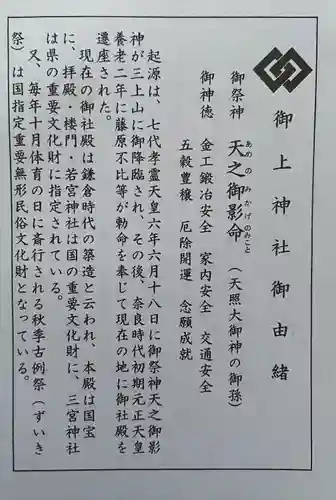 御上神社御由緒
御祭神 天之御影命（天照大御神の御孫）
あめのみかげのみこと
御神徳 金工鍛冶安全 家内安全 交通安全
五穀豊穣 厄除開運 念願成就
起源は、七代孝霊天皇六年六月十八日に御祭神天之御影
神が三上山に御降臨され、その後、奈良時代初期元正天皇
養老二年に藤原不比等が勅命を奉じて現在の地に御社殿を
遷座された。
現在の御社殿は鎌倉時代の築造と云われ、本殿は国宝
に、拝殿・楼門・若宮神社は国の重要文化財に、三宮神社
は県の重要文化財に指定されている。
又、毎年十月体育の日に斎行される秋季古例祭（ずいき
祭）は国指定重要無形民俗文化財となっている。